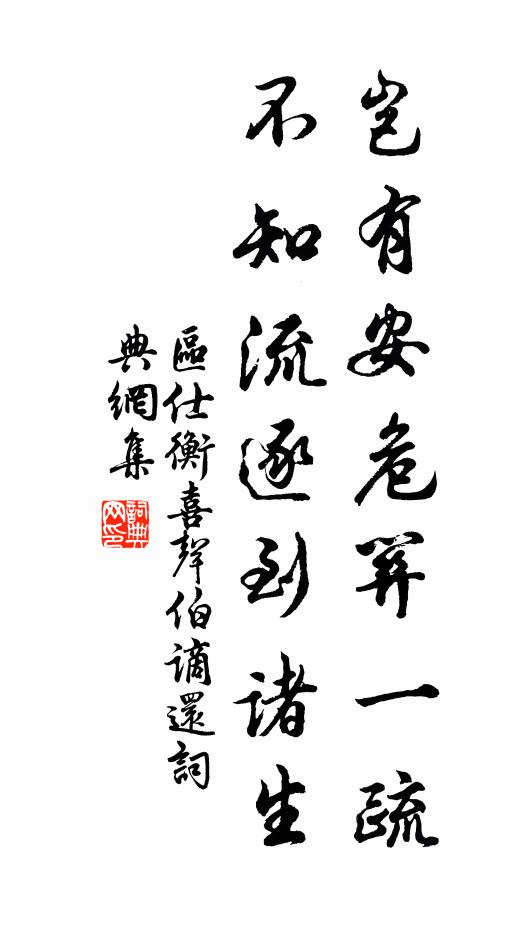 豈有安危關一疏
不知流逐到諸生
區仕衡喜聲伯謫還詞
典網集
詞典網印